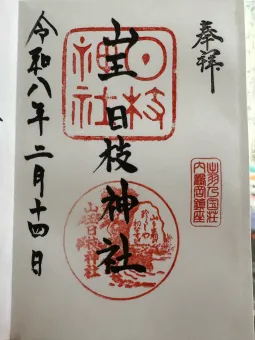 奉拝
日枝神社
山王日枝神社
出羽乃国荘
内鶴岡鎮座
山王日枝神社
令和八年二月十四日